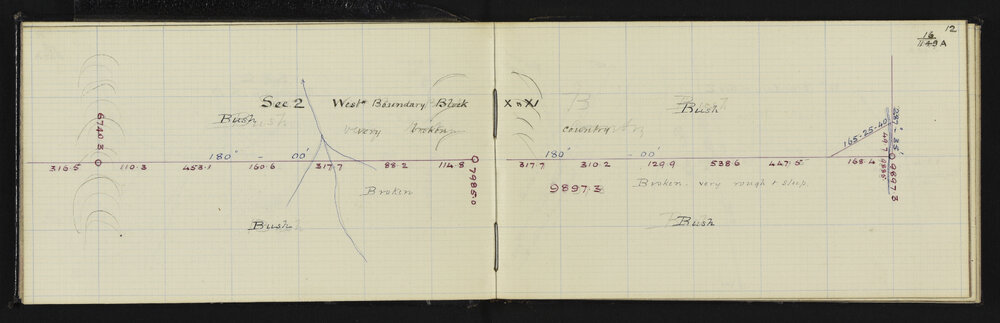 12
16
1149 A
Sec 2 West Boundary Block X n XI
Bush
very broken country
Bush
6740.3
180° - 00'
180° - 00'
165-25-40
287° 35'
316.5 110.3 453.1 160.6 317.7 88.2 114.8
317.7 310.2 129.9 538.6 447.5 168.4
7985.0
9897.3
9897.3
Broken
Broken very rough & steep
Bush
Bush